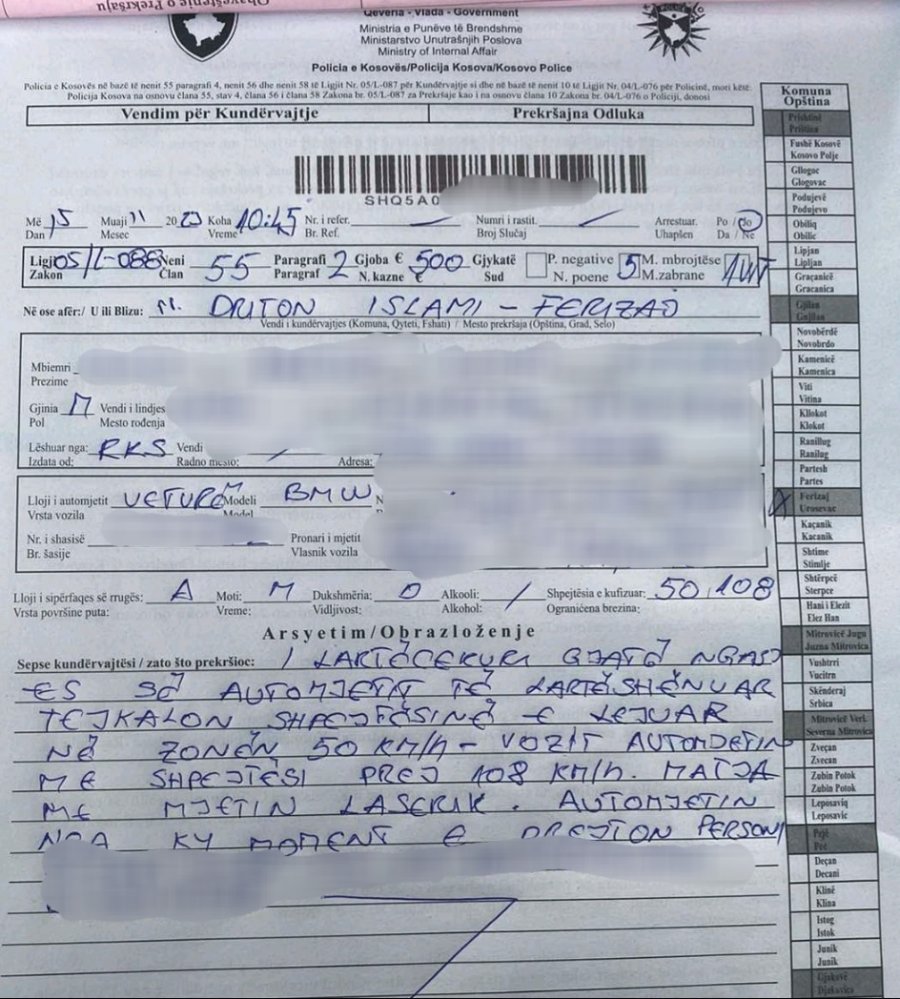 Obaveštenje o Prekršaju
Qeveria - Vlada - Government
Ministria e Punëve të Brendshme
Ministarstvo Unutrašnjih Poslova
Ministry of Internal Affair
Policia e Kosovës/Policija Kosova/Kosovo Police
Policia e Kosovës në bazë të nenit 55 paragrafi 4, nenit 56 dhe nenit 58 të Ligjit Nr. 05/L-087 për Kundërvajtje si dhe në bazë të nenit 10 të Ligjit Nr. 04/L-076 për Policinë, mori këtë
Policija Kosova na osnovu člana 55, stav 4, člana 56 i člana 58 Zakona br. 05/L-087 za Prekršaje kao i na osnovu člana 10 Zakona br. 04/L-076 o Policiji, donosi
Vendim për Kundërvajtje Prekršajna Odluka
SHQ5A0
Më 15 Muaji 11 2023 Koha 10:45 Nr. i refer. Numri i rastit. Arrestuar. Po / Jo
Dan Mesec Vreme Br. Ref. Broj Slučaj Uhapšen Da / Ne
Ligji 05/L-088 Neni 55 Paragrafi 2 Gjoba € 500 Gjykatë P. negative 5 M. mbrojtëse
Zakon Član Paragraf N. kazne € Sud N. poene M.zabrane
Në ose afër:/ U ili Blizu: DRITON ISLAMI - FERIZAJ
Vendi i kundërvajtjes (Komuna, Qyteti, Fshati) / Mesto prekršaja (Opština, Grad, Selo)
Mbiemri
Prezime
Gjinia M Vendi i lindjes
Pol Mesto rođenja
Lëshuar nga: RKS Vendi
Izdata od: Radno mesto: Adresa:
Lloji i automjetit VETURË Modeli BMW
Vrsta vozila Model
Nr. i shasisë Pronari i mjetit
Br. šasije Vlasnik vozila
Lloji i sipërfaqes së rrugës: A Moti: M Dukshmëria: O Alkooli: / Shpejtësia e kufizuar: 50/108
Vrsta površine puta: Vreme: Vidljivost: Alkohol: Ograničena brezina:
Arsyetim/Obrazloženje
Sepse kundërvajtësi / zato što prekršioc: I LARTËCEKURI GJATË NGAS
ËS SË AUTOMJETIT TË LARTËSHËNUAR
TEJKALON SHPEJTËSINË E LEJUAR
NË ZONËN 50 KM/H - VOZIT AUTOMJETIN
ME SHPEJTËSI PREJ 108 KM/H. MATJA
ME MJETIN LASERIK. AUTOMJETIN
NGA KY MOMENT E DREJTON PERSONI
Komuna
Opština
Prishtinë
Priština
Fushë Kosovë
Kosovo Polje
Gllogoc
Glogovac
Podujevë
Podujevo
Obiliq
Obilic
Lipjan
Lipljan
Graçanicë
Gracanica
Gjilan
Gnjilan
Novobërdë
Novobrdo
Kamenicë
Kamenica
Viti
Vitina
Kllokot
Klokot
Ranillug
Ranilug
Partesh
Partes
Ferizaj
Urosevac
Kaçanik
Kacanik
Shtime
Stimlje
Shtërpcë
Sterpce
Hani i Elezit
Elez Han
Mitrovicë Jugu
Juzna Mitrovica
Vushtrri
Vucitrn
Skënderaj
Srbica
Mitrovicë Veri.
Severna Mitrovica
Zveçan
Zvecan
Zubin Potok
Zubin Potok
Leposaviq
Leposavic
Pejë
Peć
Deçan
Decani
Klinë
Klina
Istog
Istok
Junik
Junik
Gjakovë
Djakovica